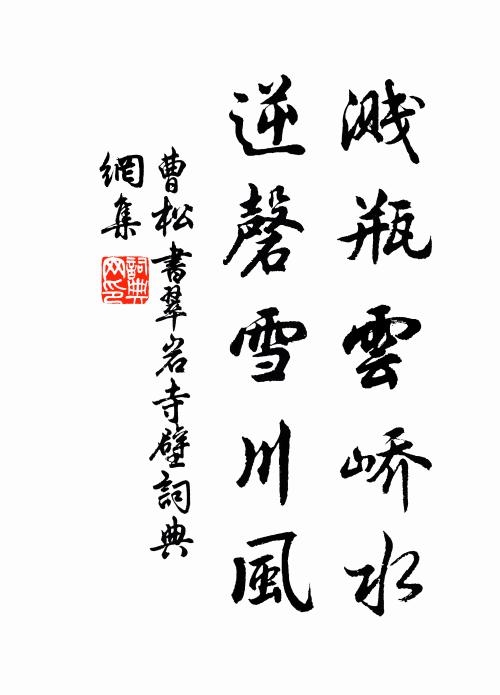 濺瓶雲嶠水
逆磬雪川風
曹松書翠岩寺壁詞典
網集
詞典
网印